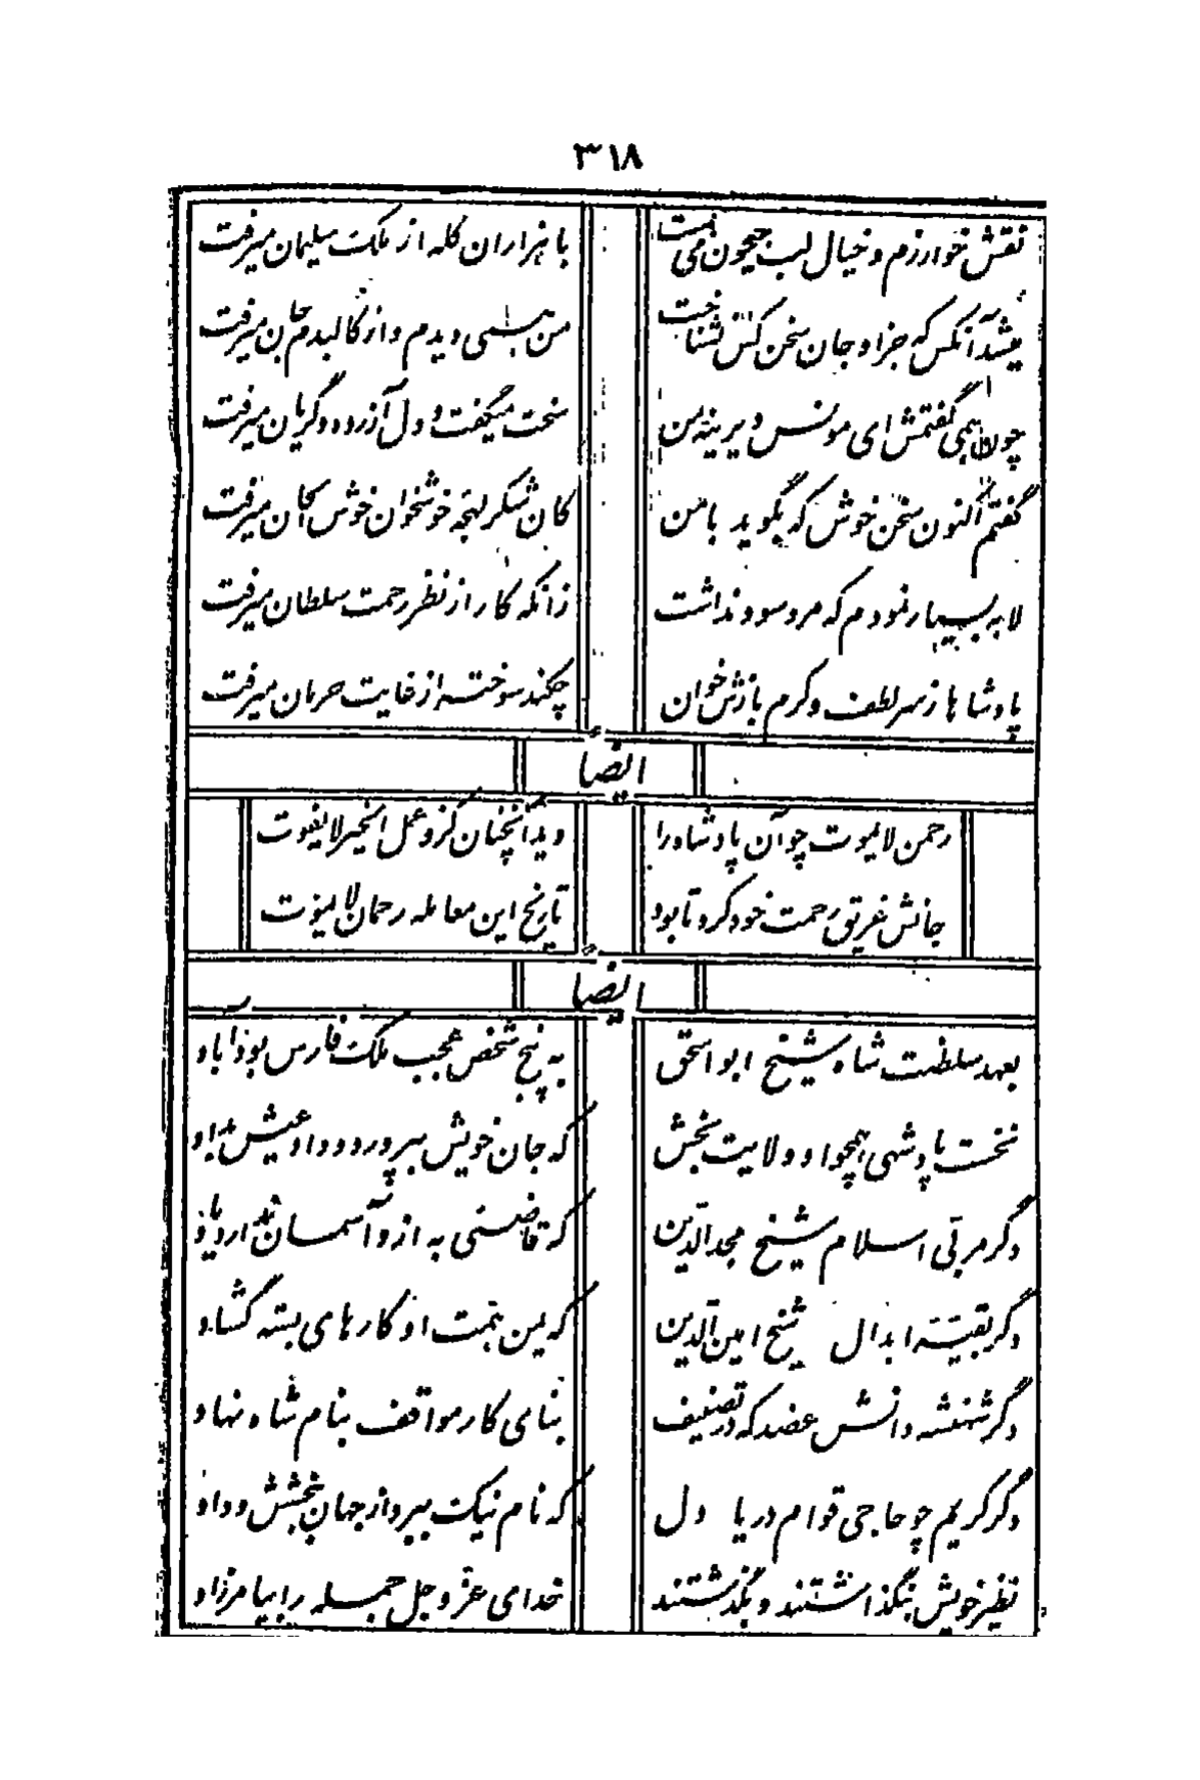 ٣١٨
نقش خوارزم و خیال لب جیحون می بست با هزاران گله از ملک سلیمان میرفت
میشد آنکس که جز او جان سخن کس نشناخت من همی دیدم و از کالبدم جان میرفت
چون همی گفتمش ای مونس دیرینه من سخت میگفت و دل آزرده و گریان میرفت
گفتم اکنون سخن خوش که بگوید با من کان شکر لهجه خوشخوان خوش الحان میرفت
لابه بسیار نمودم که مرو سود نداشت زانکه کار از نظر رحمت سلطان میرفت
پادشاها ز سر لطف و کرم بازش خوان چکند سوخته از غایت حرمان میرفت
ایضاً
رحمن لایموت چو آن پادشاه را دید آنچنان کزو عمل الخیر لایفوت
جانش غریق رحمت خود کرد تا بود تاریخ این معامله رحمان لایموت
ایضاً
بعهد سلطنت شاه شیخ ابواسحق به پنج شخص عجب ملک فارس بود آباد
نخست پادشهی همچو او ولایت بخش که جان خویش بپرورد و داد عیش بداد
دگر مربی اسلام شیخ مجدالدین که قاضئی به ازو آسمان ندارد یاد
دگر بقیّهٔ ابدال شیخ امین الدین که یمن همت او کارهای بسته گشاد
دگر شهنشه دانش عضد که در تصنیف بنای کار مواقف بنام شاه نهاد
دگر کریم چو حاجی قوام دریا دل که نام نیک ببرد از جهان ببخشش و داد
نظیر خویش بنگذاشتند و بگذشتند خدای عزّ و جل جمله را بیامرزاد